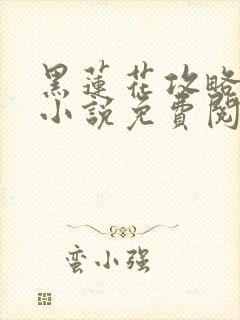 黑蓮花攻略
小說免費閱
蛮小强